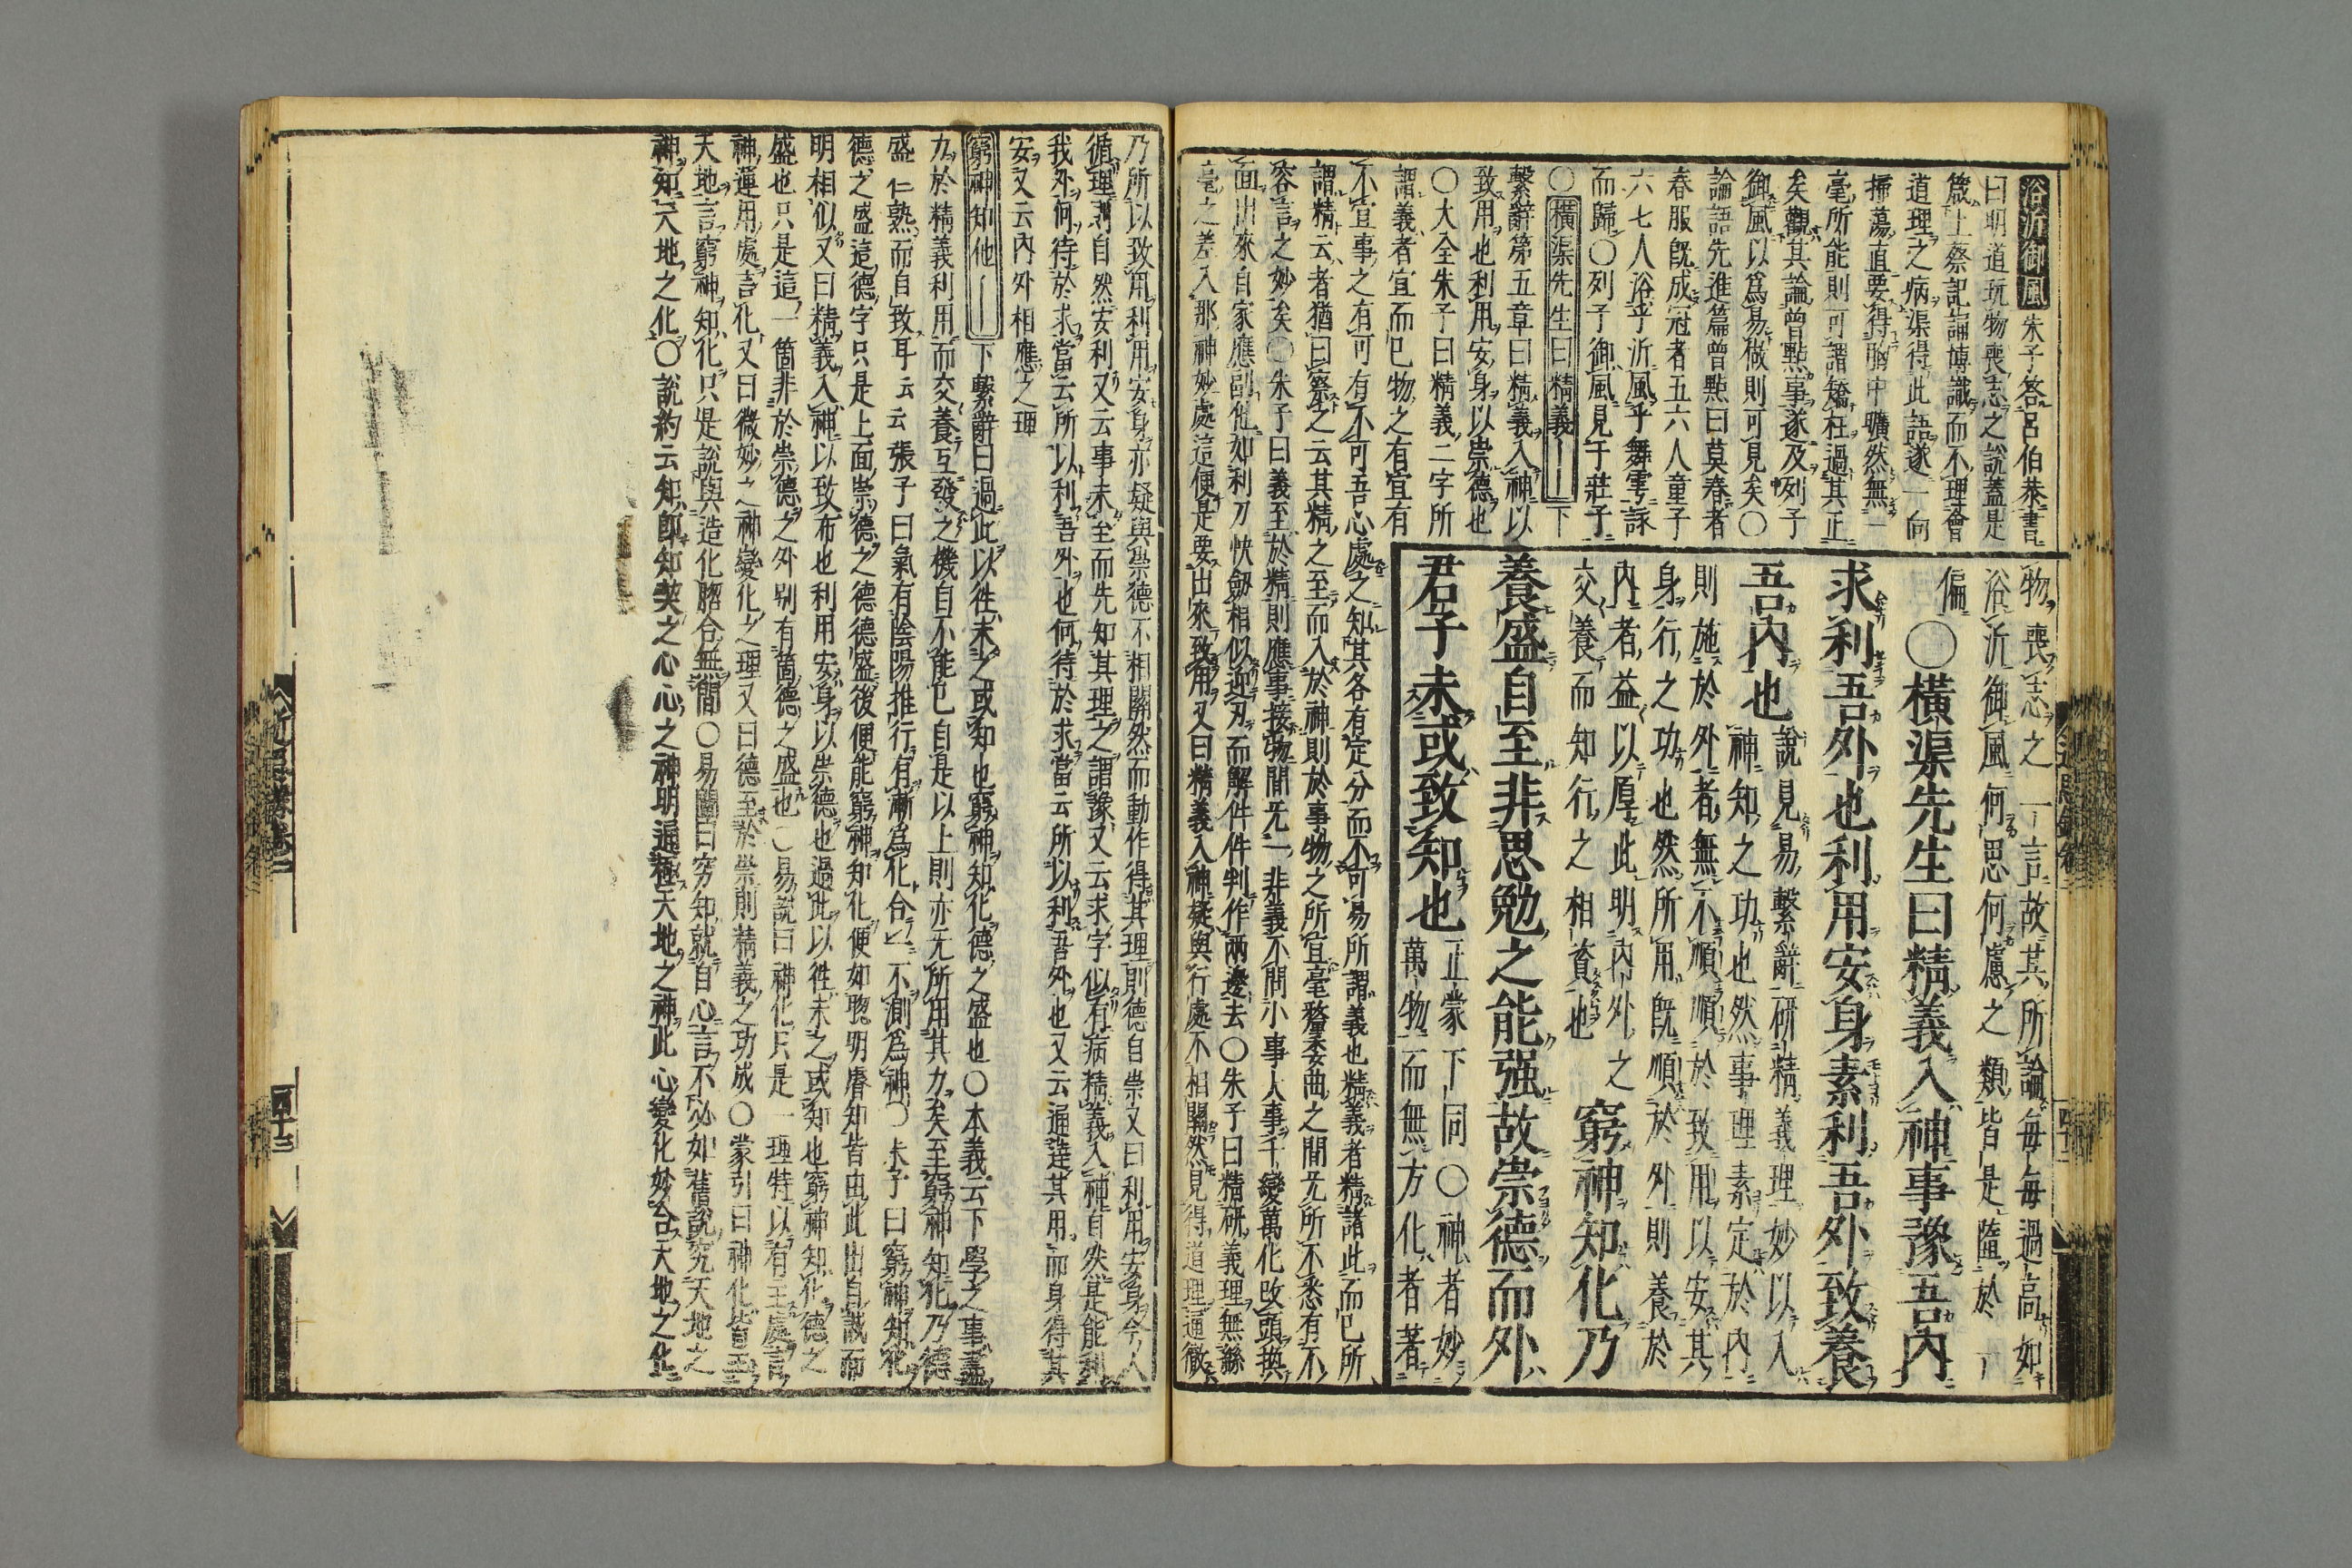 浴沂御風 朱子答呂伯恭書
曰明道玩物喪志之說蓋是
箴上蔡記誦博識而不理會
道理之病渠得此語遂一向
掃蕩直要得胸中曠然無一
毫所能則可謂矯枉過其正
矣觀其論曾點事遂及列子
御風以爲易做則可見矣〇
論語先進篇曾點曰莫春者
春服既成冠者五六人童子
六七人浴乎沂風乎舞雩詠
而歸〇列子御風見于莊子
〇橫渠先生曰精義――下
繫辭第五章曰精義入神以
致用也利用安身以崇德也
〇大全朱子曰精義二字所
謂義者宜而已物之有宜有
不宜事之有可有不可吾心處之知其各有定分而不可易所謂義也精義者精諸此而已所
謂精云者猶曰察之云其精之至而入於神則於事物之所宜毫釐委曲之間无所不悉有不
容言之妙矣〇朱子曰義至於精則應事接物間无一非義不問小事大事千變萬化改頭換
面出來自家應副他如利刀快劔相似迎刃而解件件判作兩邊去〇朱子曰精研義理無絲
毫之差入那神妙處這便是要出來致用又曰精義入神疑與行處不相關然見得道理通徹
物喪志之一言故其所論每每過高如
浴沂御風何思何慮之類皆是墮於一
偏〇橫渠先生曰精義入神事豫吾內
求利吾外也利用安身素利吾外致養
吾內也說見易繫辭研精義理妙以入
神知之功也然事理素定於內
則施於外者無不順順於致用以安其
身行之功也然所用既順於外則養於
內者益以厚此明內外之
交養而知行之相資也窮神知化乃
養盛自至非思勉之能强故崇德而外
君子未或致知也正蒙下同〇神者妙
萬物而無方化者著
乃所以致用利用安身亦疑與崇德不相關然而動作得其理則德自崇又曰利用安身今人
循理則自然安利又云事未至而先知其理之謂豫又云求字似有病精義入神自然是能利
我外何待於求當云所以利吾外也何待於求當云所以利吾外也又云通達其用而身得其
安又云內外相應之理
窮神知他――下繫辭曰過此以往未之或知也窮神知化德之盛也〇本義云下學之事盡
力於精義利用而交養互發之機自不能已自是以上則亦无所用其力矣至窮神知化乃德
盛仁熟而自致耳云云張子曰氣有陰陽推行有漸爲化合一不測爲神〇朱子曰窮神知化
德之盛這德字只是上面崇德之德德盛後便能窮神知化便如聰明睿知皆由此出自誠而
明相似又曰精義入神以致布也利用安身以崇德也過此以往未之或知也窮神知化德之
盛也只是這一箇非於崇德之外別有箇德之盛也〇易說曰神化只是一理特以有主處言
神運用處言化又曰微妙之神變化之理又曰德至於崇則精義之功成〇蒙引曰神化皆主
天地言窮神知化只是說與造化脗合無間〇易圖曰穷知就自心言不必如舊說究天地之
神知天地之化〇說約云知卽知契之心心之神明通極天地之神此心變化妙合天地之化